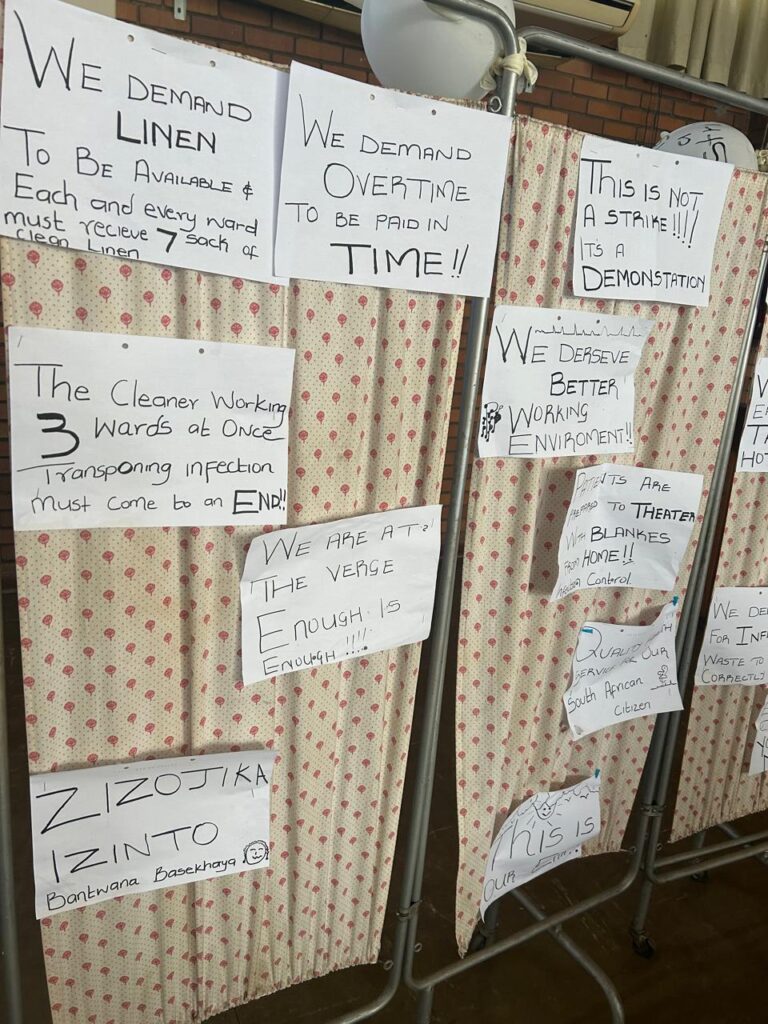 WE DEMAND
LINEN
TO BE AVAILABLE &
Each and every ward
must recieve 7 sack of
clean Linen
WE DEMAND
OVERTIME
TO BE PAID IN
TIME!!
The Cleaner Working
3 Wards at Once
Transponing infection
Must come to an END!!
WE ARE AT
THE VERGE
ENOUGH IS
ENOUGH !!!!
ZIZOJIKA
IZINTO
Bantwana Basekhaya
THIS IS NOT
A STRIKE!!!!
ITS A
DEMONSTATION
WE DERSEVE
BETTER
WORKING
ENVIROMENT!!
PATIENTS ARE
TO THEATER
WITH BLANKES
FROM HOME!!
Control
QUALITY
SERVICE OUR
South African
Citizen
THIS IS
OUR
HOT
WE DE
FOR INF
WASTE TO
CORRECTLY